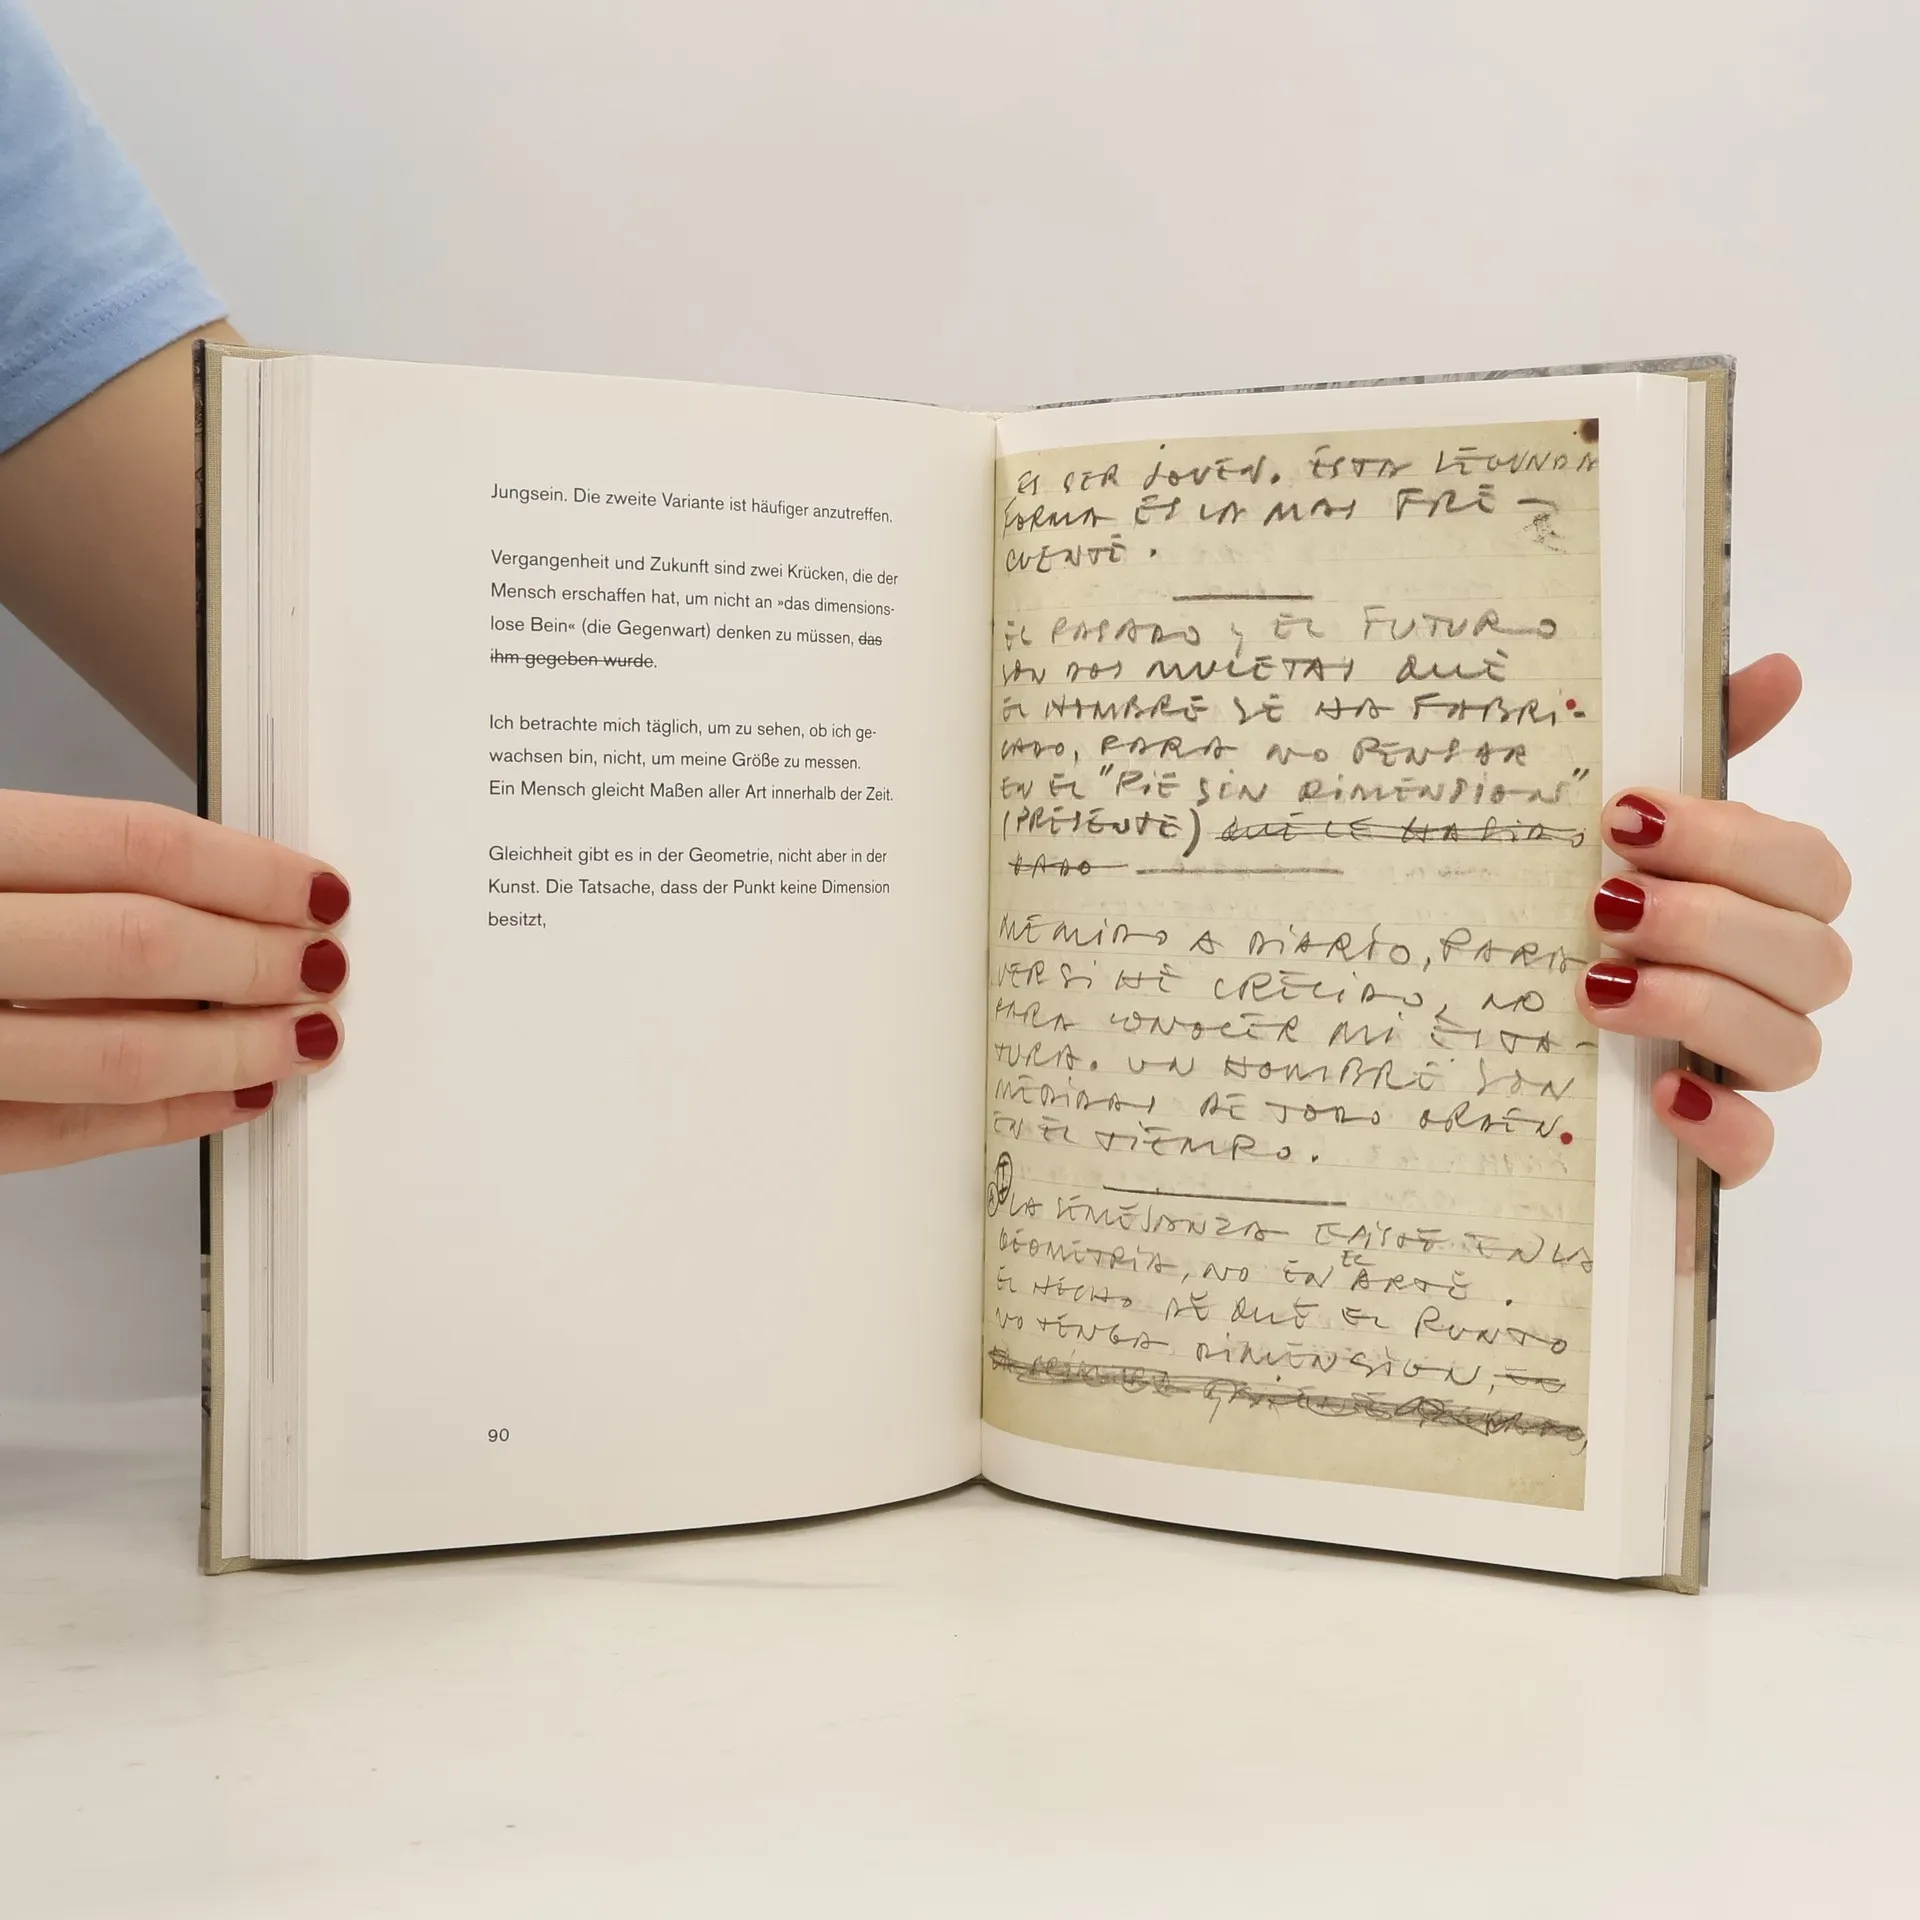 Jungsein. Die zweite Variante ist häufiger anzutreffen.
Vergangenheit und Zukunft sind zwei Krücken, die der
Mensch erschaffen hat, um nicht an »das dimensions-
lose Bein« (die Gegenwart) denken zu müssen, das
ihm gegeben wurde.
Ich betrachte mich täglich, um zu sehen, ob ich ge-
wachsen bin, nicht, um meine Größe zu messen.
Ein Mensch gleicht Maßen aller Art innerhalb der Zeit.
Gleichheit gibt es in der Geometrie, nicht aber in der
Kunst. Die Tatsache, dass der Punkt keine Dimension
besitzt,
90
ES SER JOVEN. ESTA SEGUNDA
FORMA ES LA MAS FRE-
CUENTE.
EL PASADO Y EL FUTURO
SON DOS MULETAS QUE
EL HOMBRE SE HA FABRI-
CADO, PARA NO PENSAR
EN EL "PIE SIN DIMENSION"
(PRESENTE) QUE LE HA SIDO
DADO
ME MIRO A DIARIO, PARA
VER SI HE CRECIDO, NO
PARA CONOCER MI ESTA-
TURA. UN HOMBRE SON
MEDIDAS DE TODO ORDEN.
EN EL TIEMPO.
LA SEMEJANZA EXISTE EN LA
GEOMETRIA, NO EN EL ARTE.
EL HECHO DE QUE EL PUNTO
NO TENGA DIMENSION,